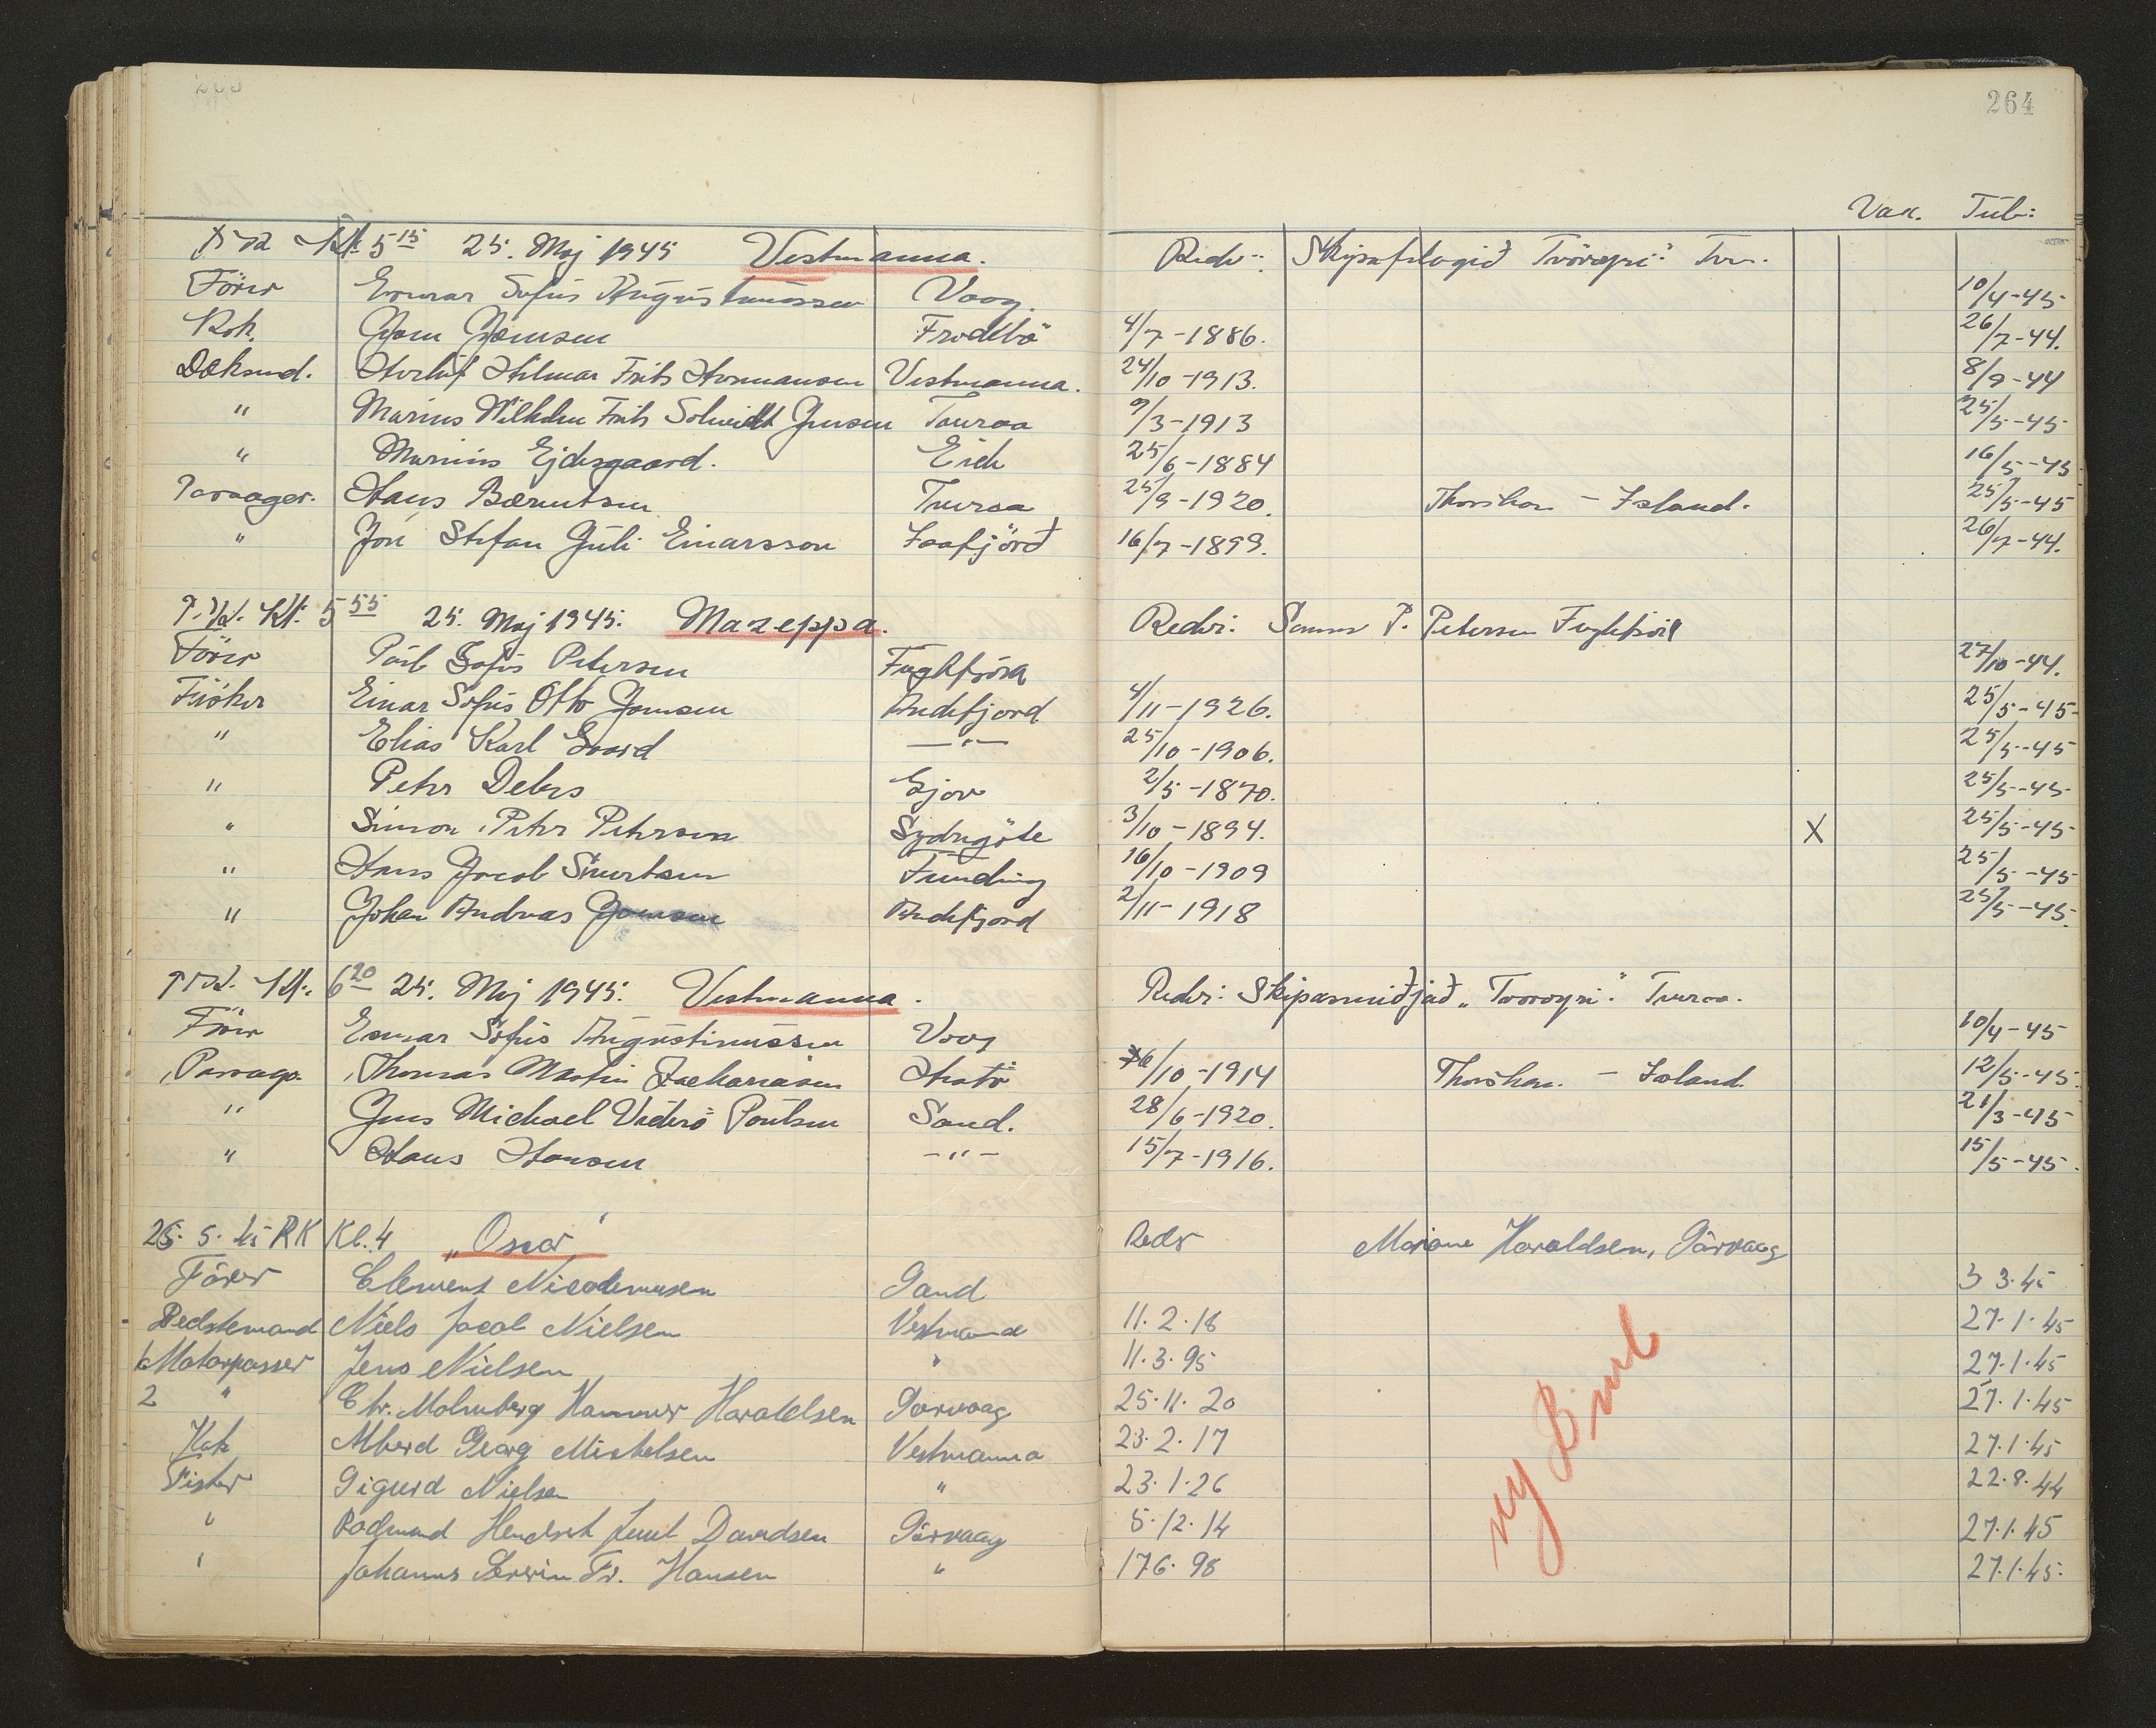 264
Vax. Tub:
Kl. 5 15 25. Maj 1945 Vestmanna. Reder: Skipafelagið Tvøroyri Tvr.
Förer Enmar Sofus Augustinussen Vaag. 10/4-45
Kok. Joen Joensen Frodebö 4/7-1886. 26/7-44.
Dæksmd. Herluf Hilmar Frits Hermansen Vestmanna. 24/10-1913. 8/9-44
" Marius Wilhelm Frits Schmidt Jensen Tveraa 9/3-1913 25/5-45
" Marius Ejdesgaard. Eide 25/6-1884 16/5-45
Passager. Hans Berentsen Tveraa 25/9-1920. Thorshavn - Island. 25/5-45
" Jon Stefan Guli Einarsson Isafjörð 16/7-1899. 26/7-44.
Kl. 5 55 25. Maj 1945. Mazeppa. Reder: Simon P. Petersen Fuglefjord
Förer Poul Sofus Petersen Fuglefjord 27/10-44.
Fisker Einar Sofus Otto Joensen Andefjord 4/11-1926. 25/5-45-
" Elias Karl Gaard -"- 25/10-1906. 25/5-45
" Peter Debes Gjov 2/5-1870. 25/5-45-
" Simon Peter Petersen Sydregöte 3/10-1894. X 25/5-45-
" Hans Jacob Sivertsen Funding 16/10-1909 25/5-45
" Johan Andreas Joensen Andefjord 2/11-1918 25/5-45-
Kl. 6 20 25. Maj 1945. Vestmanna. Reder: Skipasmiðjað "Tvøroyri." Tveraa.
Förer Enmar Sofus Augustinussen Vaag 10/4-45
Passager. Thomas Martin Zachariasen Hatö 6/10-1914 Thorshavn. - Island. 12/5-45.
" Jens Michael Viderö Poulsen Sand. 28/6-1920. 21/3-45
" Hans Hansen -"- 15/7-1916. 15/5-45.
25. 5. 45 RK Kl. 4 "Oscar" Reder Mariane Haraldsen, Sörvaag
Förer Clement Nicodemusen Sand 3 3.45
Bedstemand Niels Jacob Nielsen Vestmana 11.2.18 27.1.45
1 Motorpasser Jens Nielsen " 11.3.95 27.1.45
2 " Chr. Malmberg Hammer Haraldsen Sørvaag 25.11.20 27.1.45
Kok Alberd Georg Mikkelsen Vestmanna 23.2.17 27.1.45
Fisker Sigurd Nielsen " 23.1.26 22.8.44
" Rodmund Hendrik Juul Davidsen Sörvaag 5.12.14 27.1.45
" Johannes Serrin Fr. Hansen " 17.6.98 27.1.45.
ny